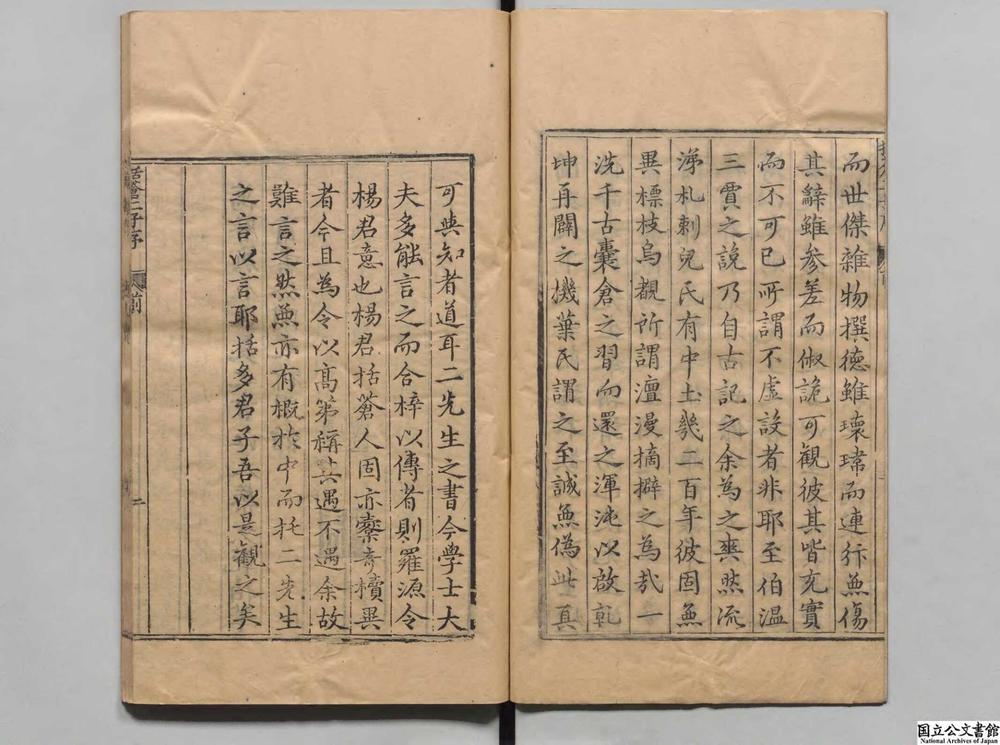 而世傑雜物撰德雖瓌瑋而連犿無傷
其辭雖參差而俶詭可觀彼其皆充實
而不可已所謂不虛設者非耶至伯溫
三賈之說乃自古記之余為之爽然流
涕札剌兒氏有中土幾二百年彼固無
異標枝烏覩所謂澶漫摘擗之為哉一
洗千古囊倉之習而還之渾沌以啟乾
坤再闢之機葉氏謂之至誠無偽此真
可與知者道耳二先生之書今學士大
夫多能言之而合梓以傳者則羅源令
楊君意也楊君括蒼人固亦橐奇櫝異
者今且為令以高第稱其遇不遇余故
難言之然無亦有概於中而托二先生
之言以言耶括多君子吾以是觀之矣
括蒼二子序
前
二
国立公文書館
National Archives of Japan